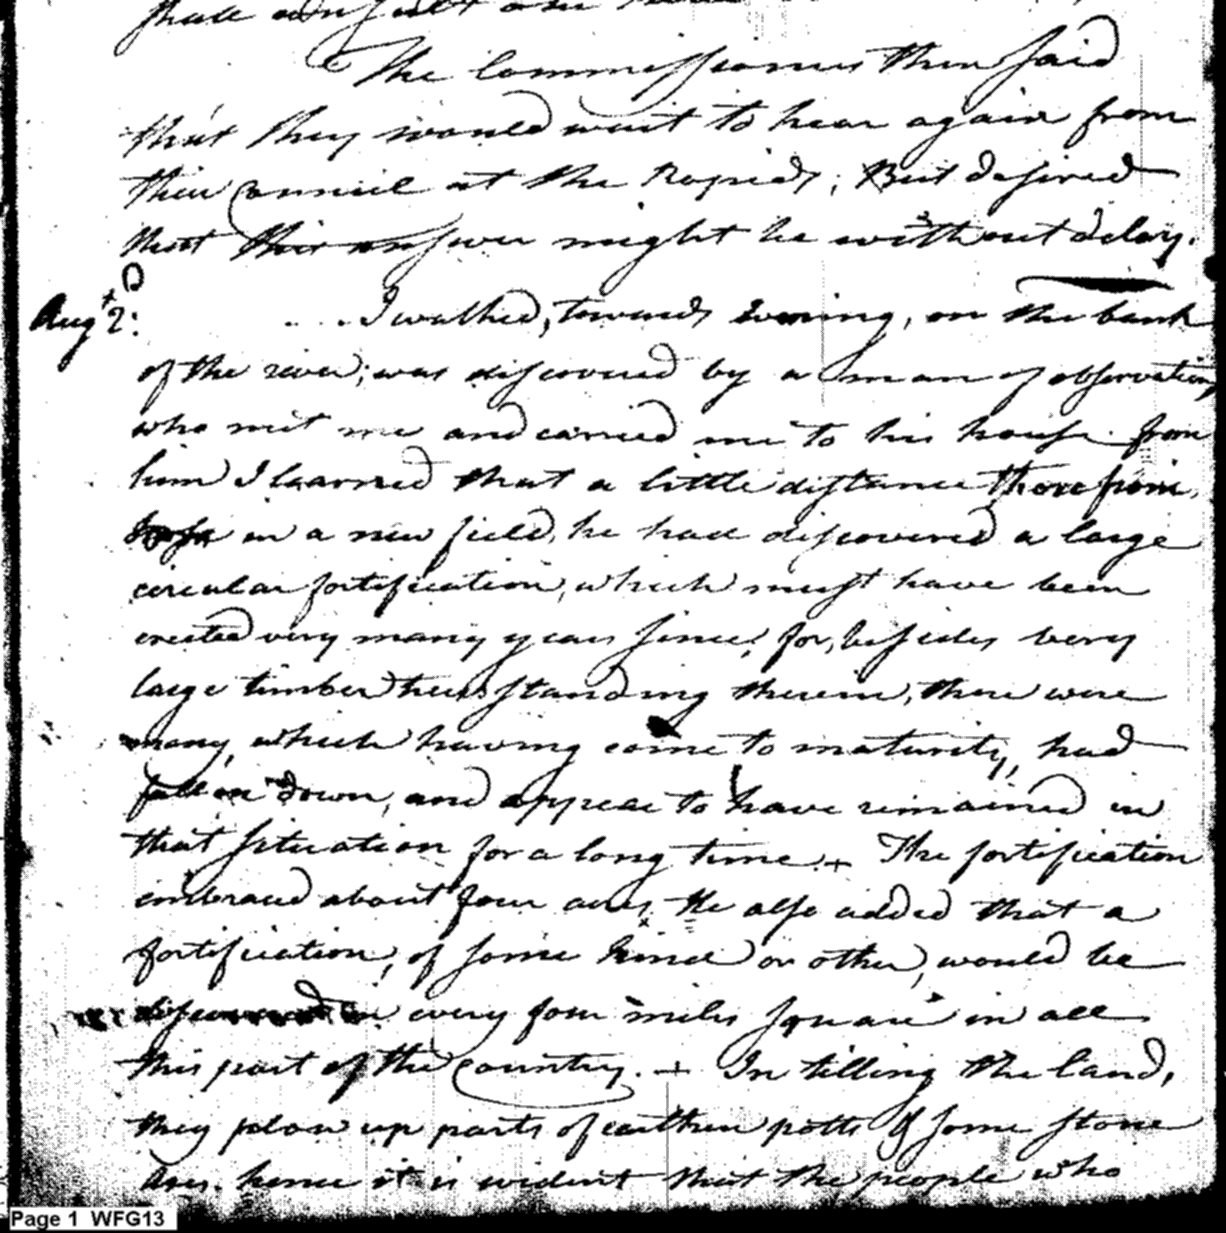 shall consult our
The Commissioners then said
that they would wait to hear again from
their Council at the Rapids; But desired
that their answer might be without delay.
Augt 2D: .... I walked, towards evening, on the bank
of the river; was discovered by a man of observation,
who met me and carried me to his house. from
him I learned that a little distance therefrom,
in a new field, he had discovered a large
circular fortification, which must have been
erected very many years since; for, besides very
large timber trees standing therein, there were
many, which having come to maturity, had
fallen down, and appear to have remained in
that situation for a long time. + The fortification
embraced about four acres. He also added that a
fortification, of some kind or other, would be
discovered in every four miles square in all
this part of the Country. + In tilling the land,
they plow up parts of earthen potts & some stone
Axes. hence it is evident that the people who
Page 1 WFG13